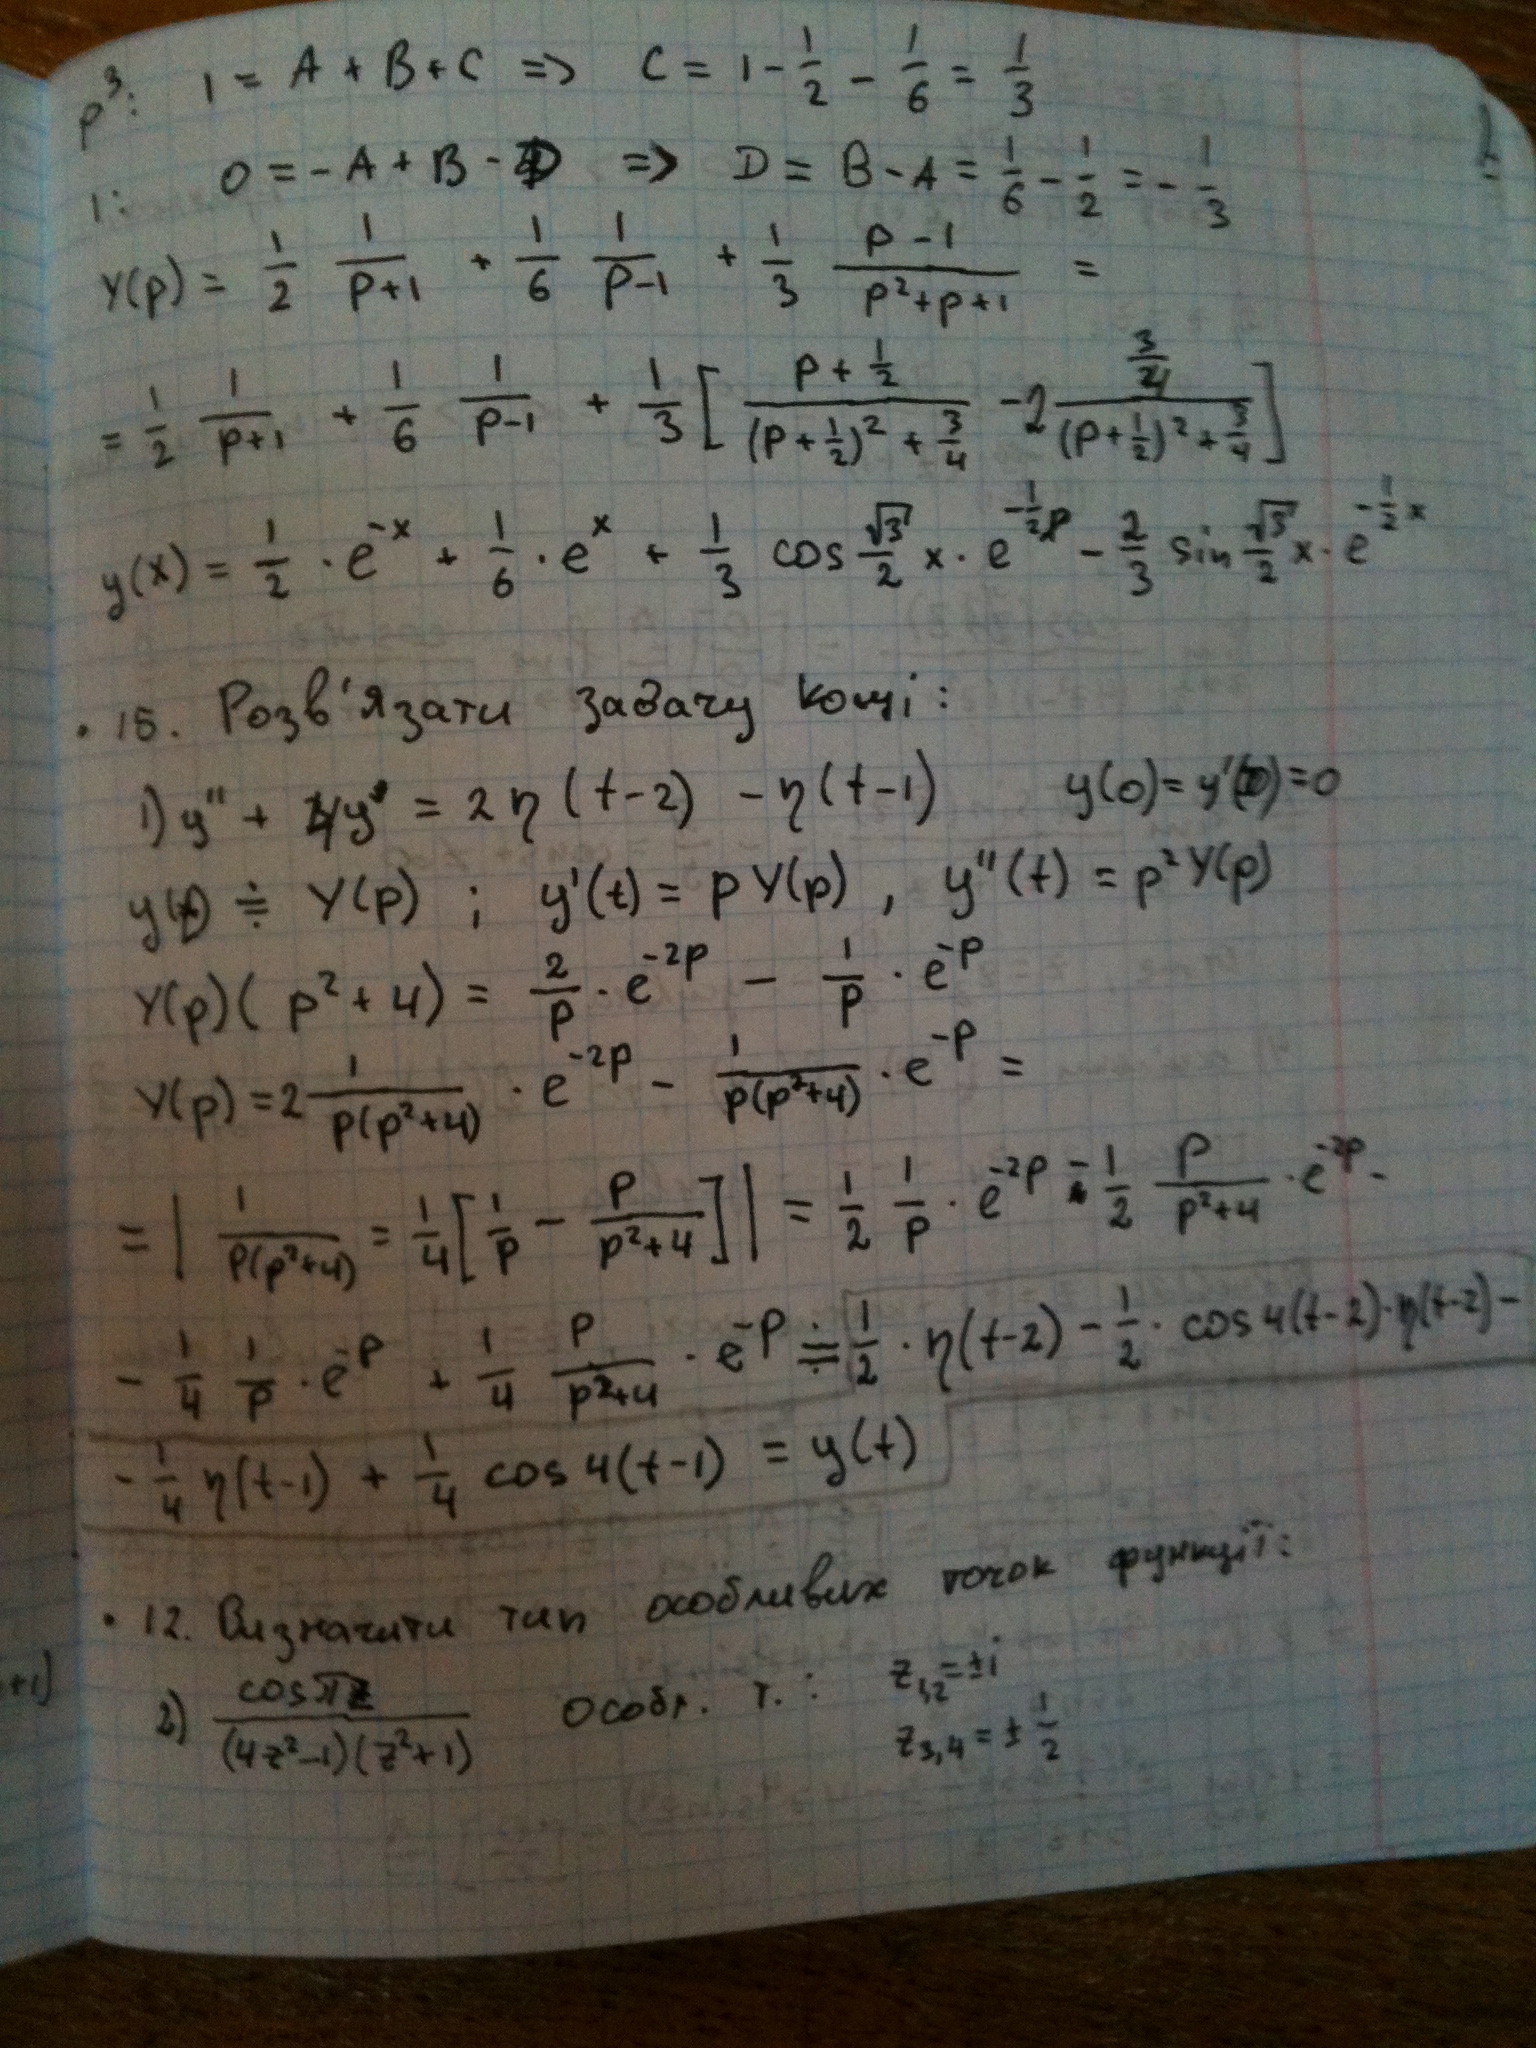 p³: 1 = A + B + C => C = 1 - 1/2 - 1/6 = 1/3
1: 0 = -A + B - D => D = B - A = 1/6 - 1/2 = - 1/3
Y(p) = 1/2 1/(p+1) + 1/6 1/(p-1) + 1/3 (p-1)/(p²+p+1) =
= 1/2 1/(p+1) + 1/6 1/(p-1) + 1/3 [ (p + 1/2)/((p+1/2)² + 3/4) - 2 (3/4)/((p+1/2)² + 3/4) ]
y(x) = 1/2 · e^(-x) + 1/6 · e^x + 1/3 cos √3/2 x · e^(-1/2 p) - 2/3 sin √3/2 x · e^(-1/2 x)
· 15. Розв'язати задачу Коші:
1) y'' + 4y = 2η(t-2) - η(t-1) y(0) = y'(0) = 0
y(t) ≑ Y(p) ; y'(t) = pY(p) , y''(t) = p²Y(p)
Y(p)( p² + 4) = 2/p · e^(-2p) - 1/p · e^(-p)
Y(p) = 2 1/(p(p²+4)) · e^(-2p) - 1/(p(p²+4)) · e^(-p) =
= | 1/(p(p²+4)) = 1/4 [ 1/p - p/(p²+4) ] | = 1/2 1/p · e^(-2p) - 1/2 p/(p²+4) · e^(-2p) -
- 1/4 1/p · e^(-p) + 1/4 p/(p²+4) · e^(-p) ≑ 1/2 · η(t-2) - 1/2 · cos 4(t-2) · η(t-2) -
- 1/4 η(t-1) + 1/4 cos 4(t-1) = y(t)
· 12. Визначити тип особливих точок функції:
2) cos πz/((4z²-1)(z²+1)) особл. т. : z₁,₂ = ±i
z₃,₄ = ± 1/2
+1)